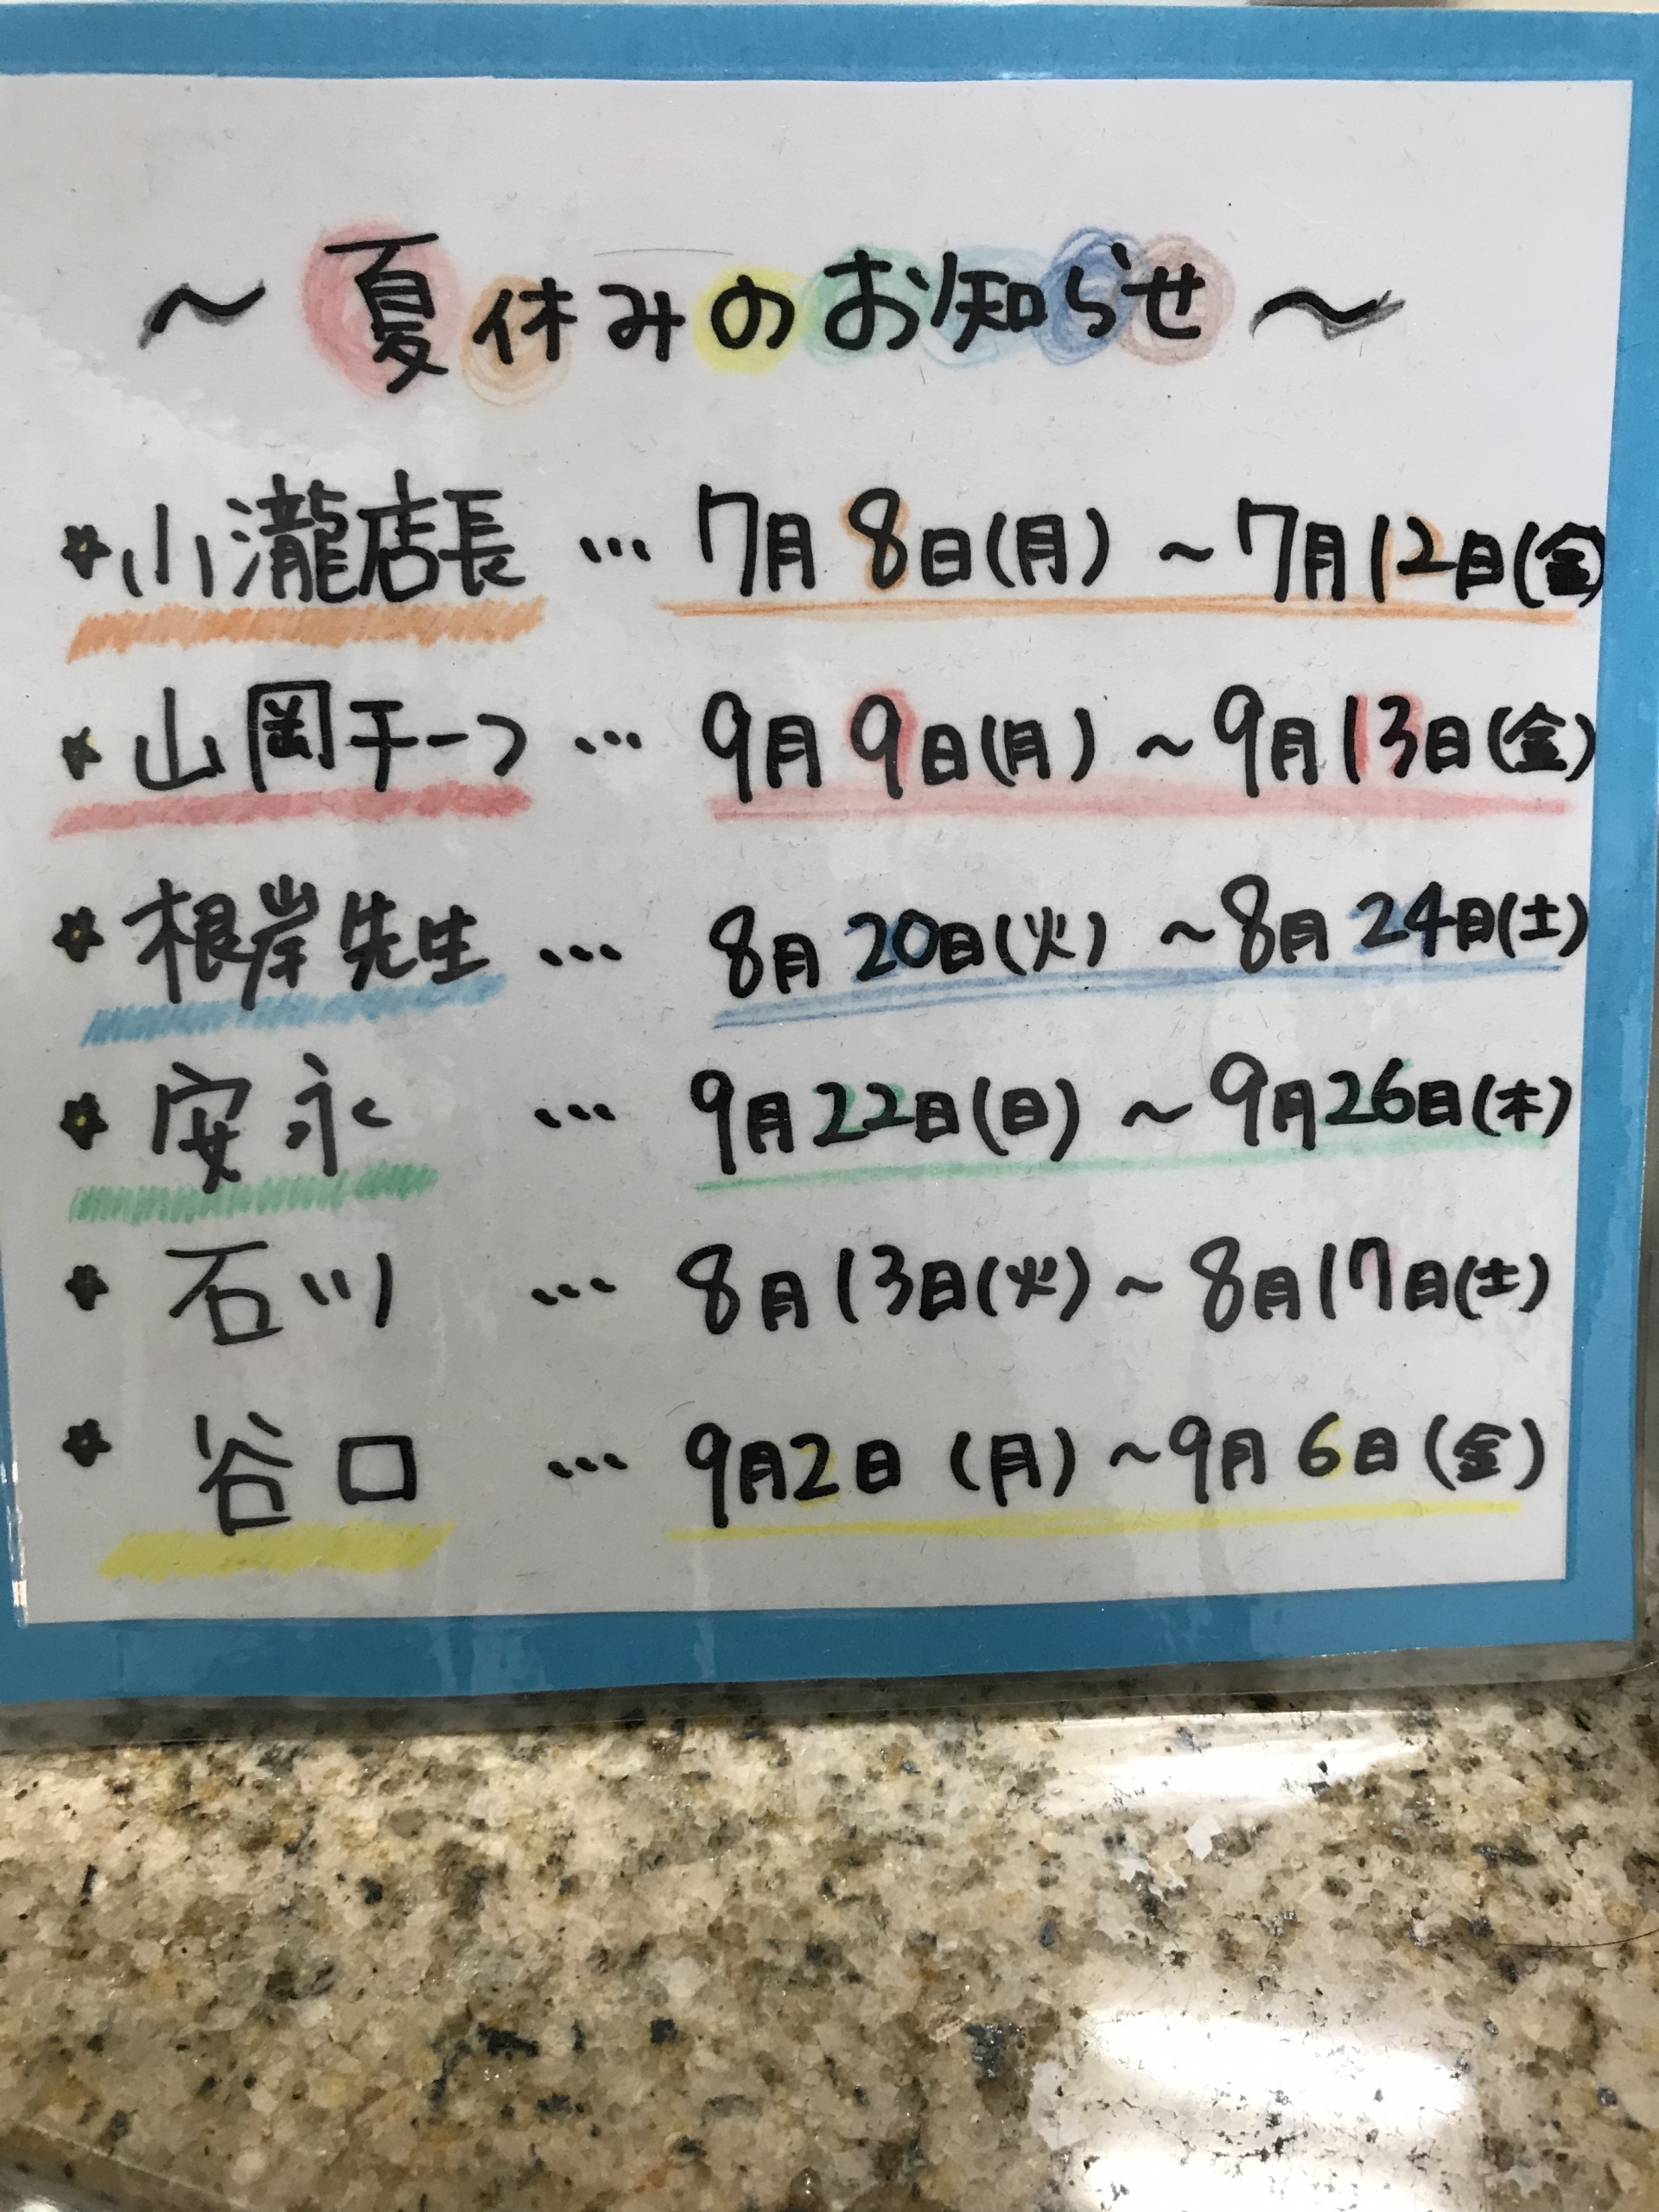 〜夏休みのお知らせ〜
小瀧店長 … 7月8日(月) 〜7月12日(金)
山岡チーフ … 9月9日(月) 〜9月13日(金)
根岸先生 … 8月20日(火) 〜8月24日(土)
安永 … 9月22日(日) 〜9月26日(木)
石川 … 8月13日(火) 〜8月17日(土)
谷口 … 9月2日(月) 〜9月6日(金)